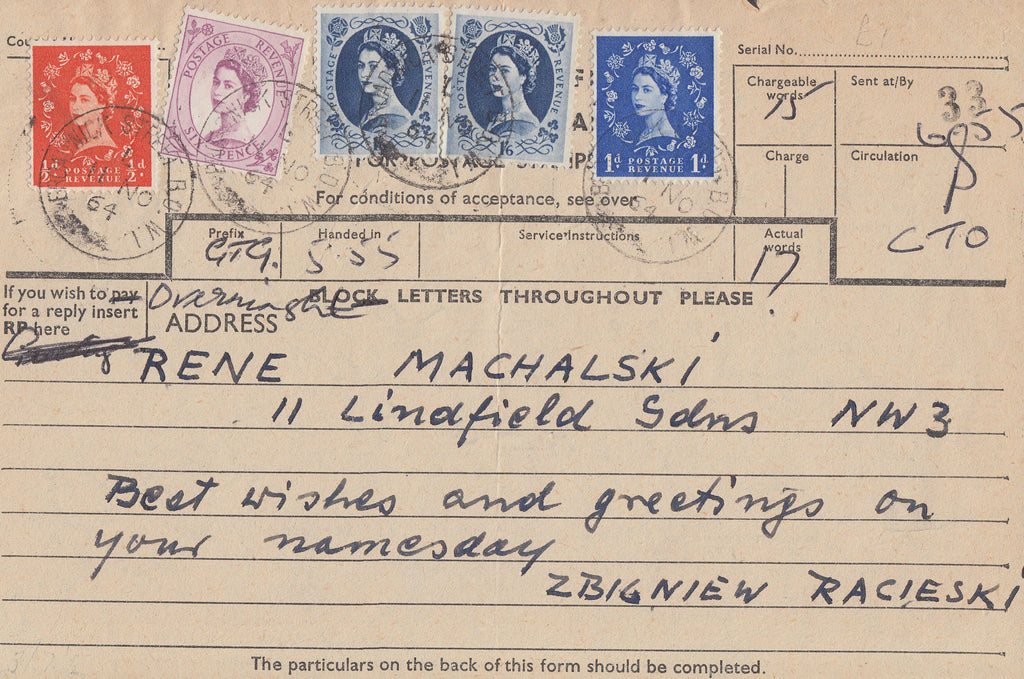 Serial No.
½d. POSTAGE REVENUE ½d.
POSTAGE REVENUE SIX PENCE
POSTAGE REVENUE
POSTAGE REVENUE 1/6
1d. POSTAGE REVENUE 1d.
64
NO 64
NO 64
FOR POSTAGE STAMPS
For conditions of acceptance, see over
Chargeable words
15
Sent at/By
33
655
Charge
Circulation
CTO
Prefix
GTG.
Handed in
5.55
Service Instructions
Actual words
17
If you wish to pay
for a reply insert
RP here
Overnight
BLOCK LETTERS THROUGHOUT PLEASE
ADDRESS
RENE MACHALSKI
11 Lindfield Gdns NW3
Best wishes and greetings on
your namesday
ZBIGNIEW RACIESKI
The particulars on the back of this form should be completed.